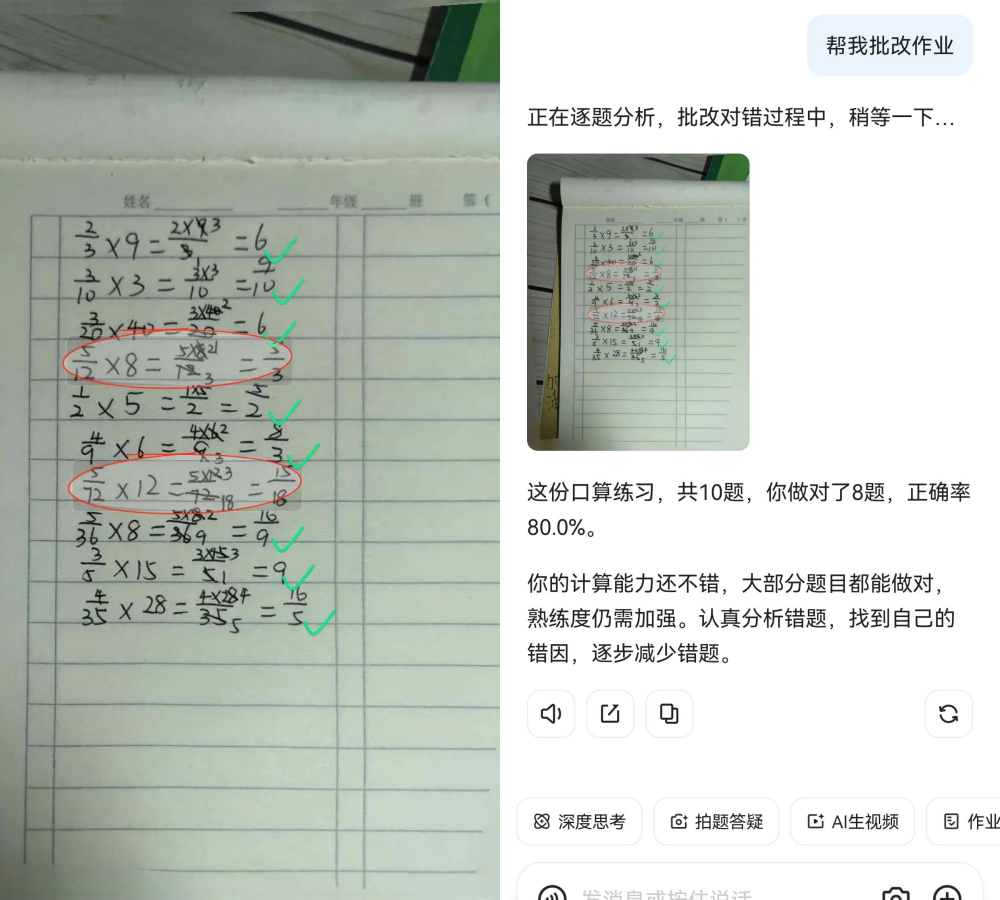 姓名 年级 班 第（
2/3 × 9 = 2×9 3/3 1 = 6
3/10 × 3 = 3×3/10 = 9/10
3/20 × 40 = 3×40 2/20 = 6
5/12 × 8 = 5×8 2/12 3 = 5/3
1/2 × 5 = 1×5/2 = 5/2
4/9 × 6 = 4×6 2/9 3 = 8/3
5/72 × 12 = 5×12 3/72 18 = 15/18
5/36 × 8 = 5×8 2/36 9 = 10/9
3/5 × 15 = 3×15 3/5 1 = 9
4/35 × 28 = 4×28 4/35 5 = 16/5
帮我批改作业
正在逐题分析，批改对错过程中，稍等一下…
这份口算练习，共10题，你做对了8题，正确率
80.0%。
你的计算能力还不错，大部分题目都能做对，
熟练度仍需加强。认真分析错题，找到自己的
错因，逐步减少错题。
深度思考 拍题答疑 AI生视频 作业
发消息或按住说话